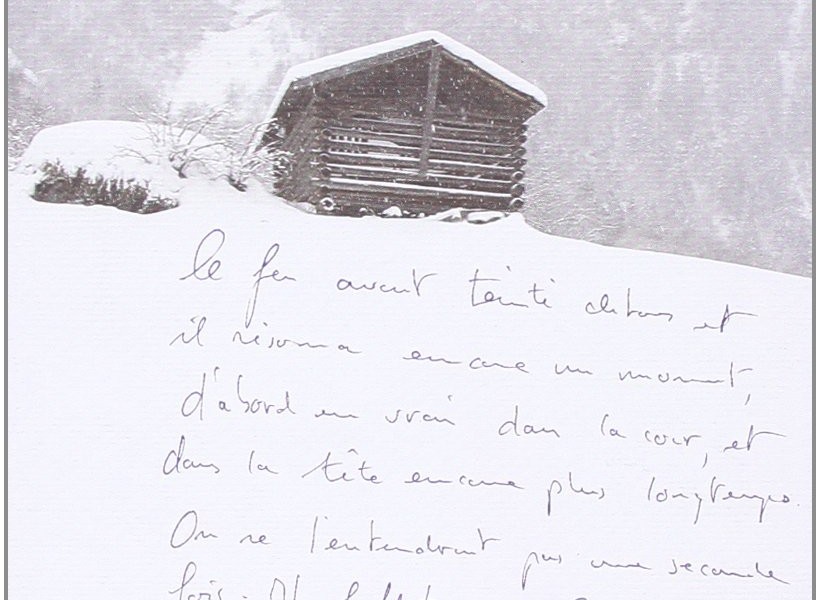 le avait teinté dehors et
il résonna encore un moment,
d'abord en vrai dans la cour, et
dans la tête encore plus longtemps.
On ne l'entendrait pas une seconde
fois.